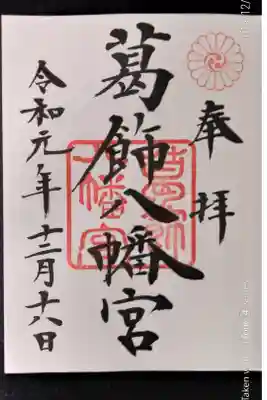 奉拝
葛飾八幡宮
令和元年十二月十八日
葛飾八幡宮